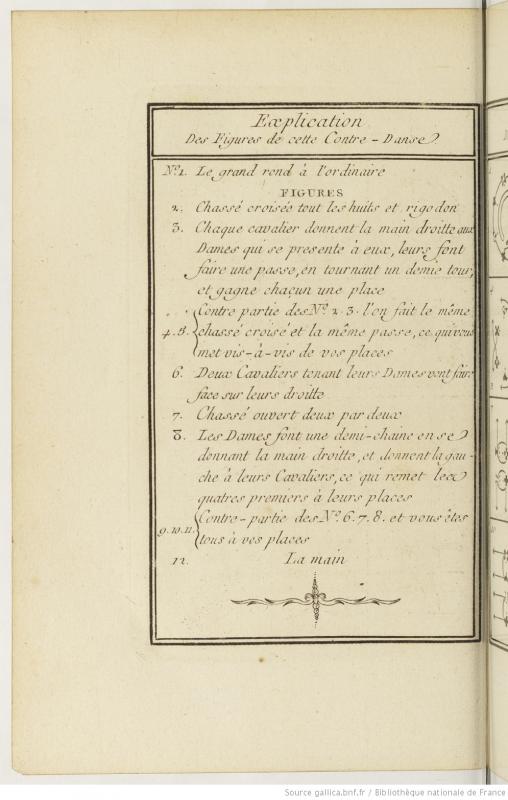 Explication
Des Figures de cette Contre-Danse
Nº1. Le grand rond à l'ordinaire
FIGURES
2. Chassé croisée tout les huits et rigodon
3. Chaque cavalier donnent la main droitte aux
Dames qui se presente à eux, leurs font
faire une passe, en tournant un demie tour,
et gagne chacun une place
Contre partie des Nº 2. 3. l'on fait le même
4. 5. chassé croisé et la même passe, ce qui vous
met vis-à-vis de vos places
6. Deux Cavaliers tenant leurs Dames vont faire
face sur leurs droitte
7. Chassé ouvert deux par deux
8. Les Dames font une demi-chaine en se
donnant la main droitte, et donnent la gau-
che à leurs Cavaliers, ce qui remet les
quatres premiers à leurs places
Contre-partie des Nº 6. 7. 8. et vous êtes
9. 10. 11. tous à vos places
12. La main
Source gallica.bnf.fr / Bibliothèque nationale de France